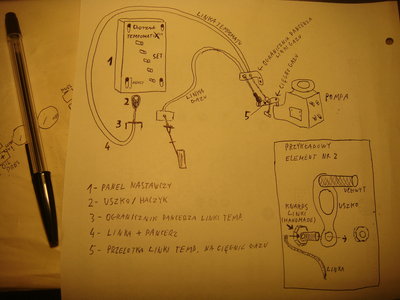 LINKA TEMPOMATU
OGRANICZNIK PANCERZA
LINKI GAZU
CIĘGNO GAZU
CRUISE
TEMPOMATIX
SET
RESET
1
2
3
4
5
LINKA
GAZU
POMPA
1 - PANEL NASTAWCZY
2 - USZKO / HACZYK
3 - OGRANICZNIK PANCERZA LINKI TEMP.
4 - LINKA + PANCERZ
5 - PRZELOTKA LINKI TEMP. NA CIĘGNIE GAZU
PRZYKŁADOWY
ELEMENT NR. 2
UCHWYT
USZKO
LINKI
(HANDMADE)
LINKA